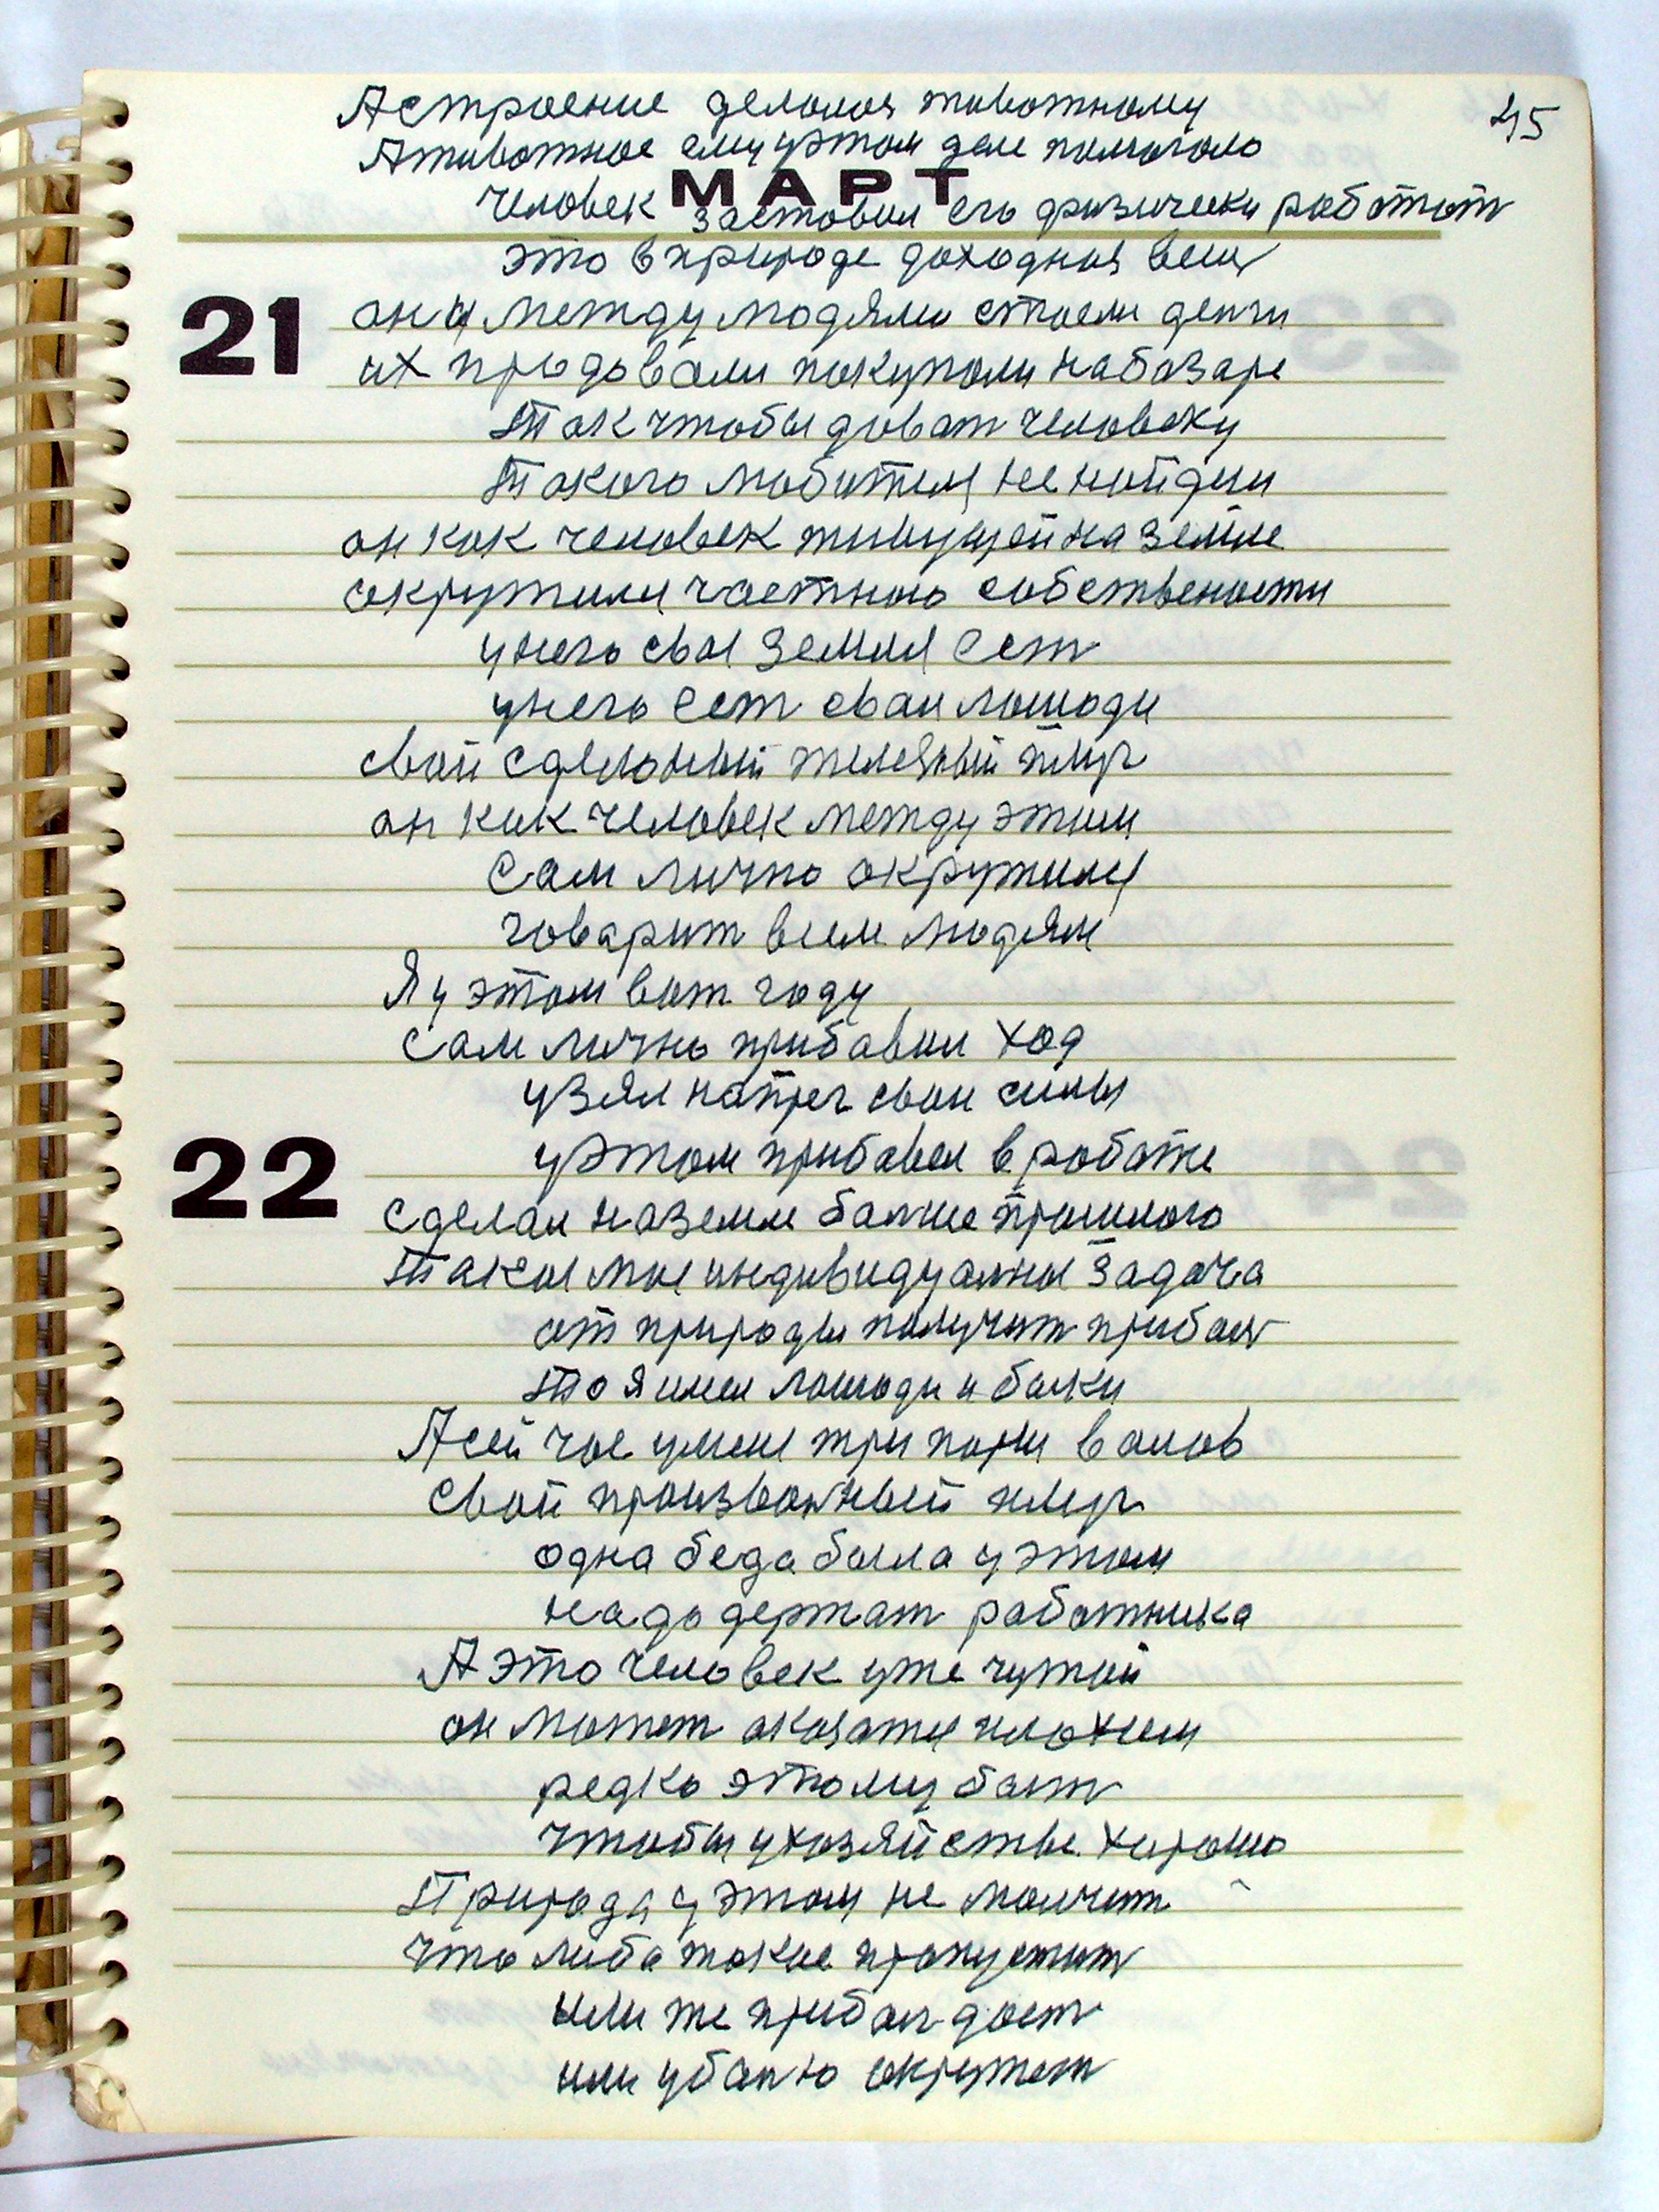 45
Астроение делолоя животному
Аживотное ему уэтом деле помогало
МАРТ
человек заставил его физически работат
это вприроде доходная вещ
21
они между людями стоели денги
их продовали покупали набазаре
Так чтобы доват человеку
Такого любителя ненайдеш
он как человек живущей на земле
окружился частною собствености
унего своя земля ест
унего ест свои лошади
свой сделоный железный плуг
он как человек между этим
Сам лично окружился
говарит всем людям
Я у этом вот году
сам лично прибавил ход
узял напрег свои силы
22
уэтом прибавел в работе
сделал наземле болше прошлого
Такая моя индивидуалная задача
от природы получит прибыл
То я имел лошоди и быки
Асейчас имею три пары валов
свой произвожный плуг
одна беда была у этом
надо держат работника
А это человек уже чужой
он может оказатся плохим
редко этому быт
чтобы ухозяйстве харошо
Природа у этом не молчит
что либо такое пропустит
или же прибыл дост
или убылю окружет